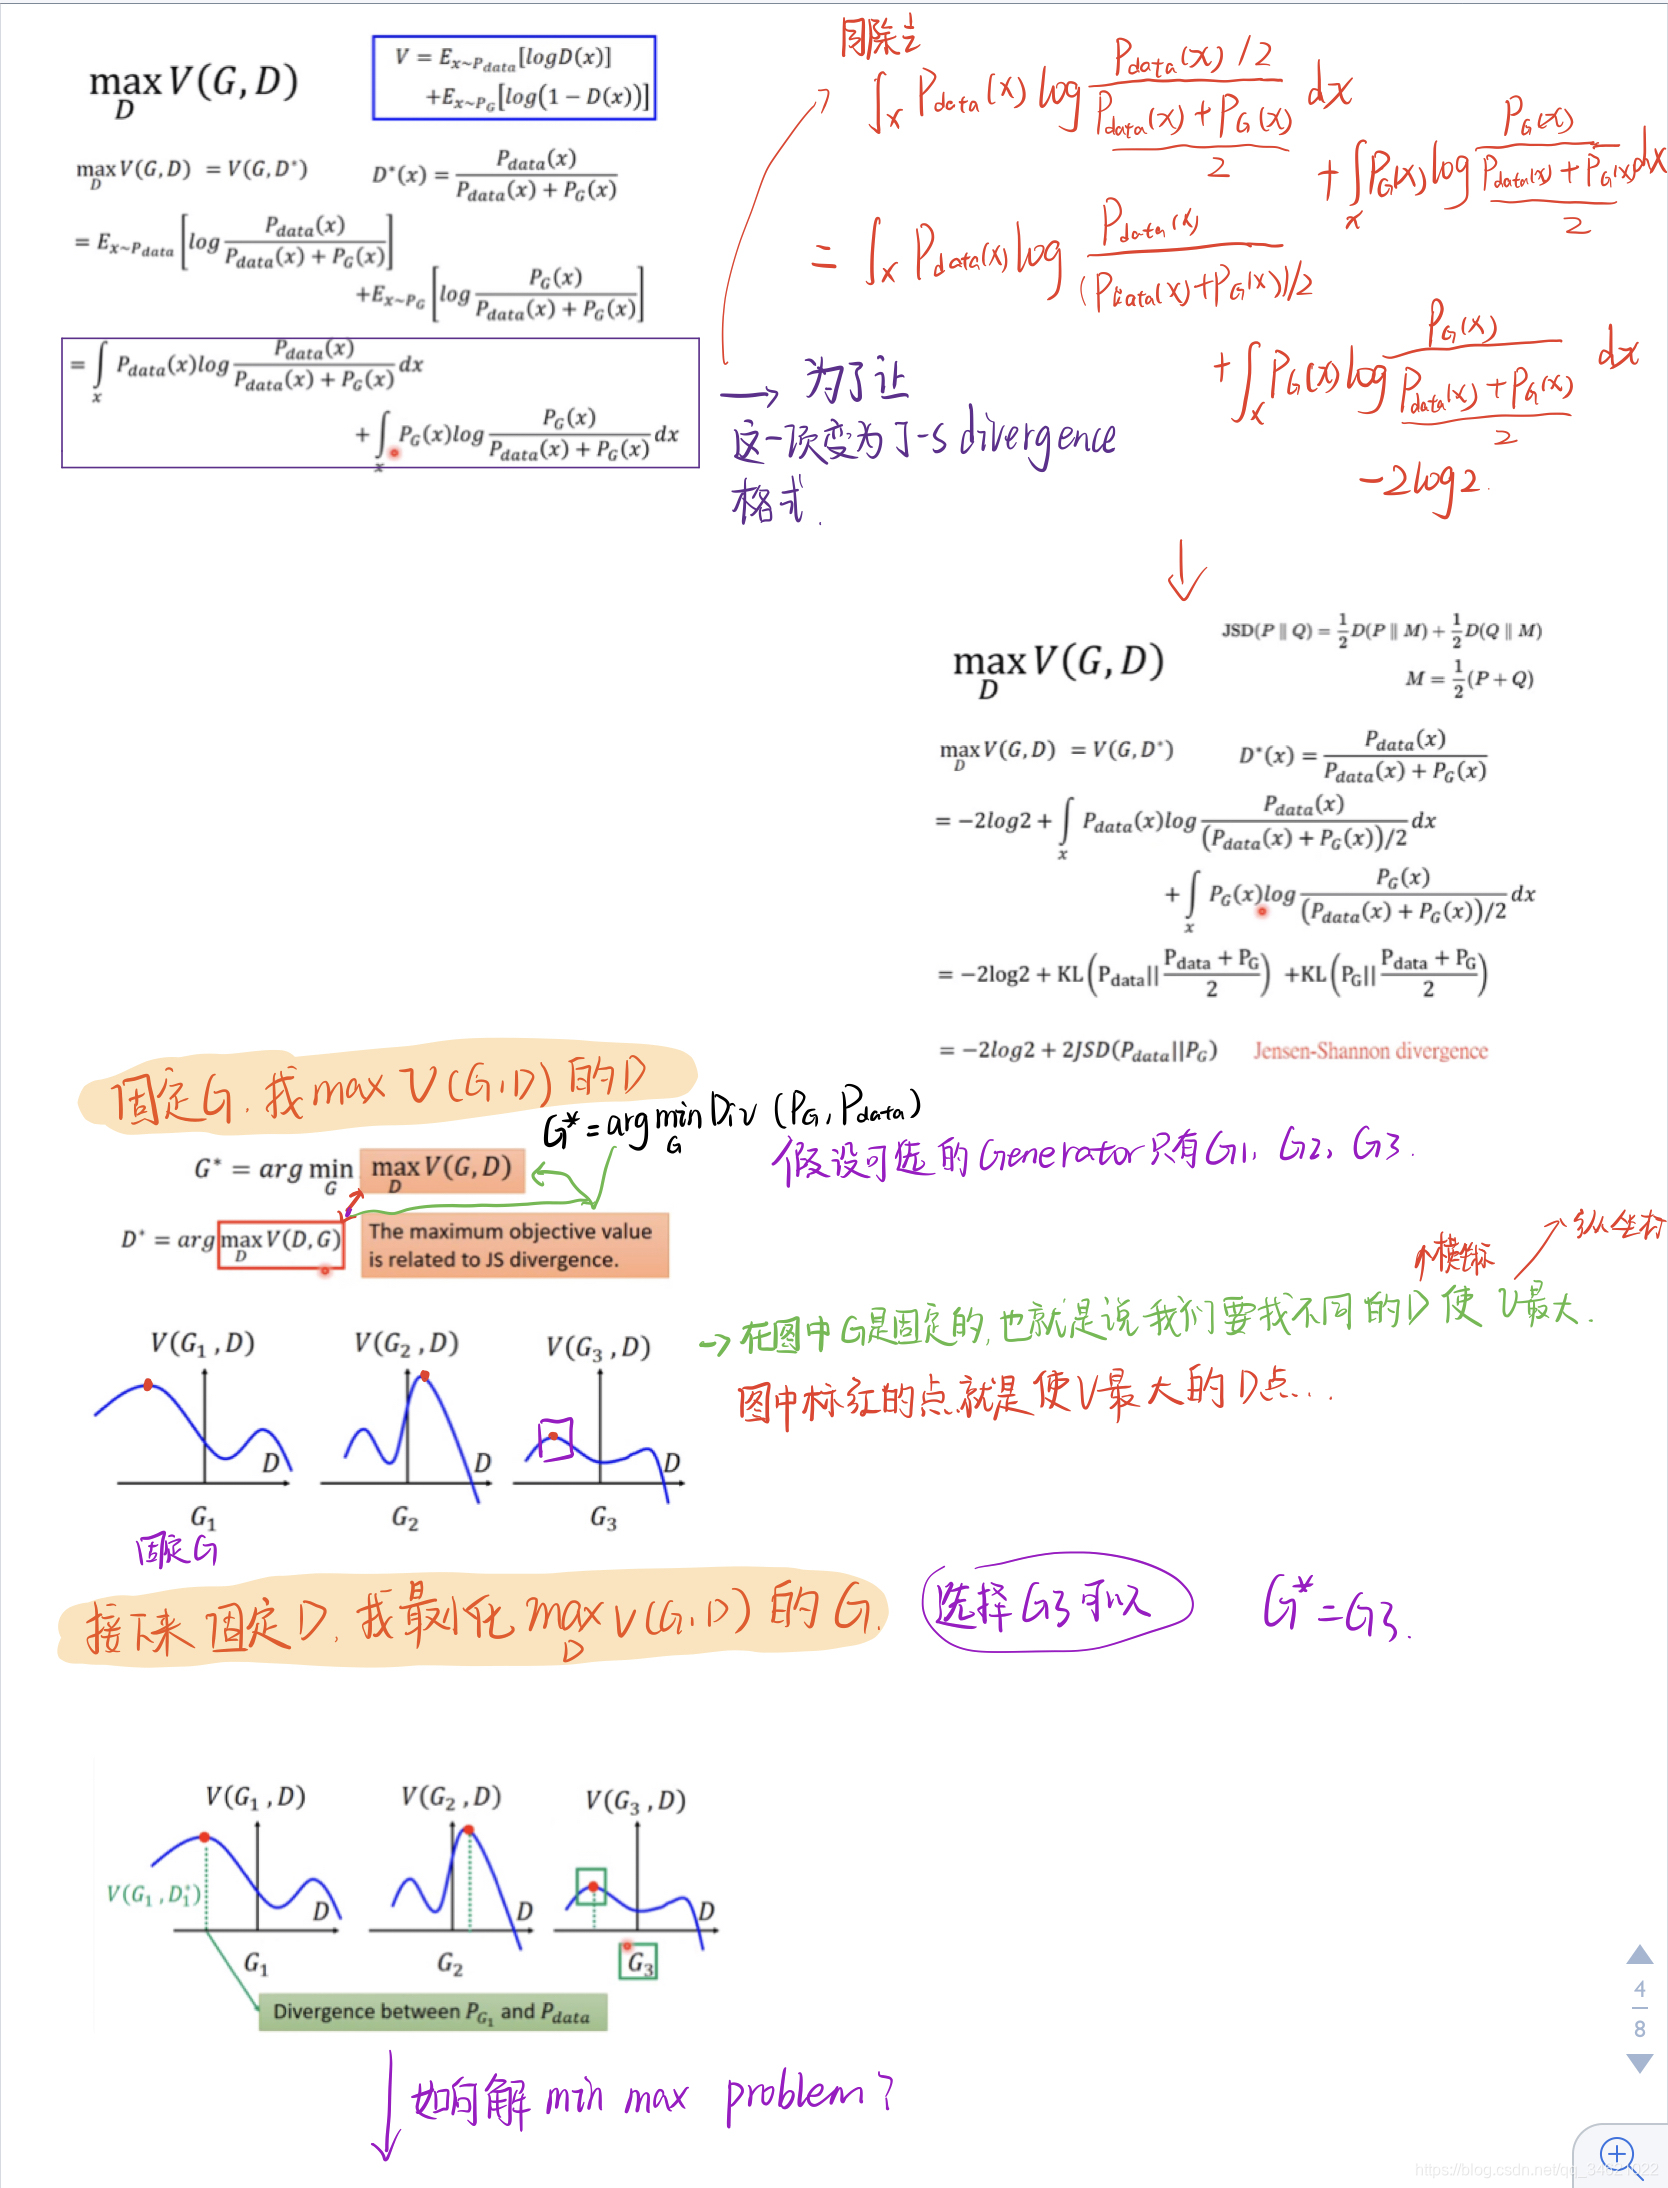 max_D V(G, D)
V = E_{x~P_data}[logD(x)]
+E_{x~P_G}[log(1 − D(x))]
max_D V(G, D) = V(G, D*)
D*(x) = P_data(x) / (P_data(x) + P_G(x))
= E_{x~P_data}[log P_data(x) / (P_data(x) + P_G(x))]
+E_{x~P_G}[log P_G(x) / (P_data(x) + P_G(x))]
= ∫_x P_data(x)log P_data(x) / (P_data(x) + P_G(x)) dx
+ ∫_x P_G(x)log P_G(x) / (P_data(x) + P_G(x)) dx
同除以 1/2
∫_x P_data(x) log (P_data(x) / 2) / ((P_data(x) + P_G(x)) / 2) dx
+ ∫_x P_G(x) log P_G(x) / ((P_data(x) + P_G(x)) / 2) dx
= ∫_x P_data(x) log P_data(x) / ((P_data(x) + P_G(x)) / 2)
+ ∫_x P_G(x) log P_G(x) / ((P_data(x) + P_G(x)) / 2) dx
−2log2
→ 为了让
这一项变为J-S divergence
格式.
max_D V(G, D)
JSD(P ∥ Q) = 1/2 D(P ∥ M) + 1/2 D(Q ∥ M)
M = 1/2 (P + Q)
max_D V(G, D) = V(G, D*)
D*(x) = P_data(x) / (P_data(x) + P_G(x))
= −2log2 + ∫_x P_data(x)log P_data(x) / ((P_data(x) + P_G(x))/2) dx
+ ∫_x P_G(x)log P_G(x) / ((P_data(x) + P_G(x))/2) dx
= −2log2 + KL(P_data || (P_data + P_G) / 2) +KL(P_G || (P_data + P_G) / 2)
= −2log2 + 2JSD(P_data||P_G) Jensen-Shannon divergence
固定G, 找max V(G,D)的D
G* = arg min_G Div (P_G, P_data)
G* = arg min_G max_D V(G, D)
假设可选的Generator只有G1, G2, G3.
D* = arg max_D V(D, G)
The maximum objective value
is related to JS divergence.
横坐标
纵坐标
→ 在图中G是固定的, 也就是说我们要找不同的D使V最大.
图中标红的点就是使V最大的D点...
V(G1 ,D)
V(G2 ,D)
V(G3 ,D)
D
D
D
G1
G2
G3
固定G
接下来固定D, 找最小化 max_D V(G,D)的G.
选择G3可以
G* = G3.
V(G1 ,D)
V(G2 ,D)
V(G3 ,D)
V(G1 ,D1*)
D
D
D
G1
G2
G3
Divergence between P_G1 and P_data
如何解 min max problem?
4
8